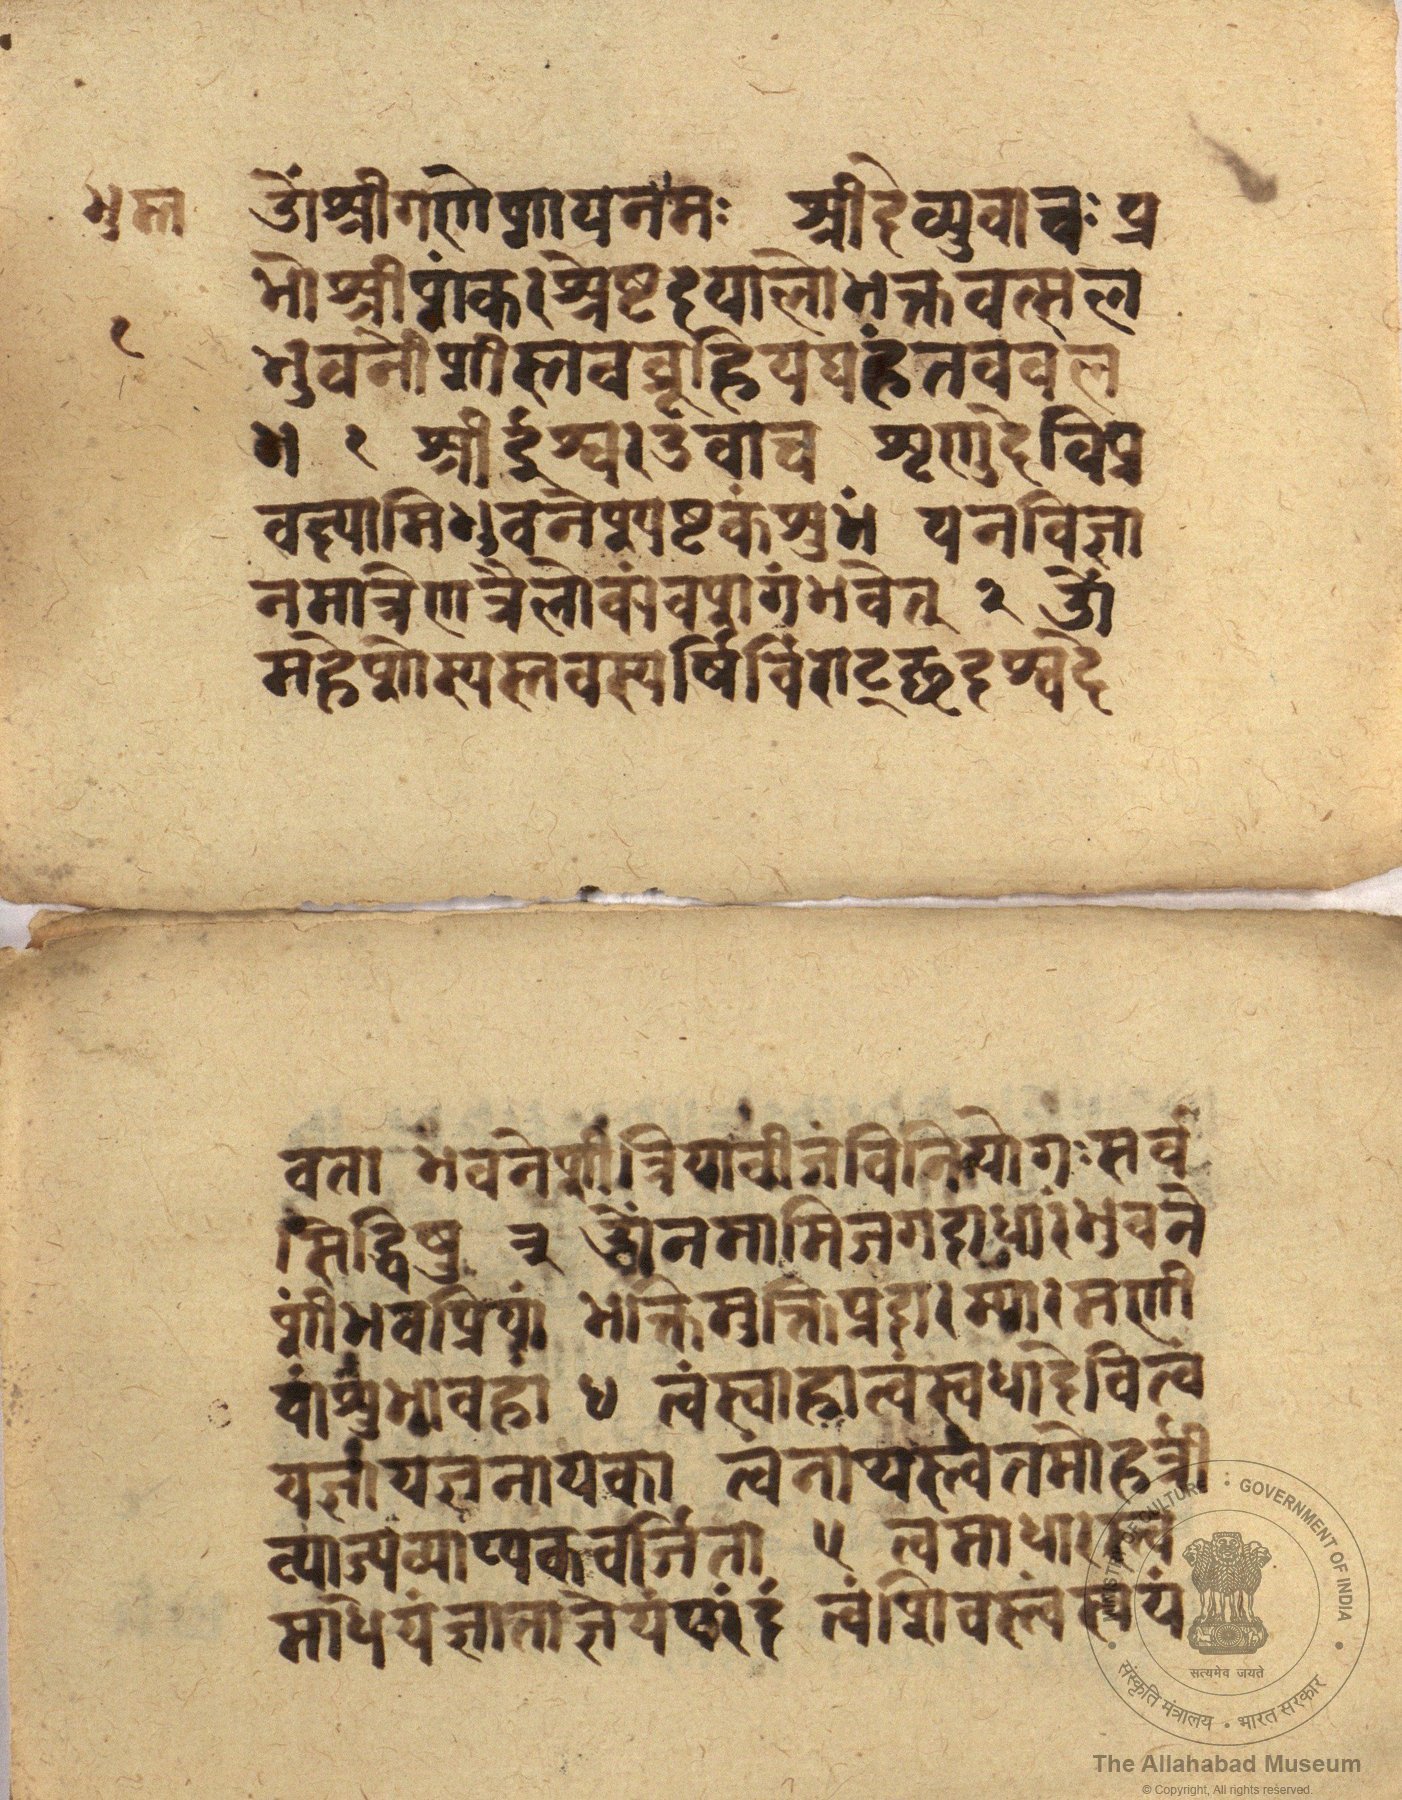 भुस्त
१
ॐश्रीगणेशायनमः श्रीदेव्युवाचः प्र
भोश्रीशंकरश्रेष्टदयालोभक्तवत्सल
भुवनीशीस्तवब्रूहियद्यहंतववल्ल
भ १ श्रीईश्वरउवाच शृणुदेविप्र
वक्ष्यामिभुवनेश्यष्टकंशुभं येनविज्ञा
नमात्रेणत्रैलोक्यंवशगंभवेत् २ ॐ
महेशोस्यस्तवस्यर्षिर्विराट्छन्दश्चदे
वता भवनेशीत्रियावीजंविनियोगःसर्व
सिद्धिषु ३ ॐनमामिजगदाधारांभुवने
शीभवप्रियां भक्तिमुक्तिप्रदारम्यारमणी
यांशुभावहां ४ त्वंस्वाहात्वंस्वधादेवित्वं
यज्ञायज्ञनायका त्वंनाथ्यस्त्वंतमोहर्त्री
व्याप्यव्यापकवर्जिता ५ त्वमाधारस्त्व
माधेयंज्ञाताज्ञेयंपरंदं त्वंशिवस्त्वंस्वयं
MINISTRY OF CULTURE · GOVERNMENT OF INDIA
सत्यमेव जयते
संस्कृति मंत्रालय · भारत सरकार
The Allahabad Museum
© Copyright, All rights reserved.